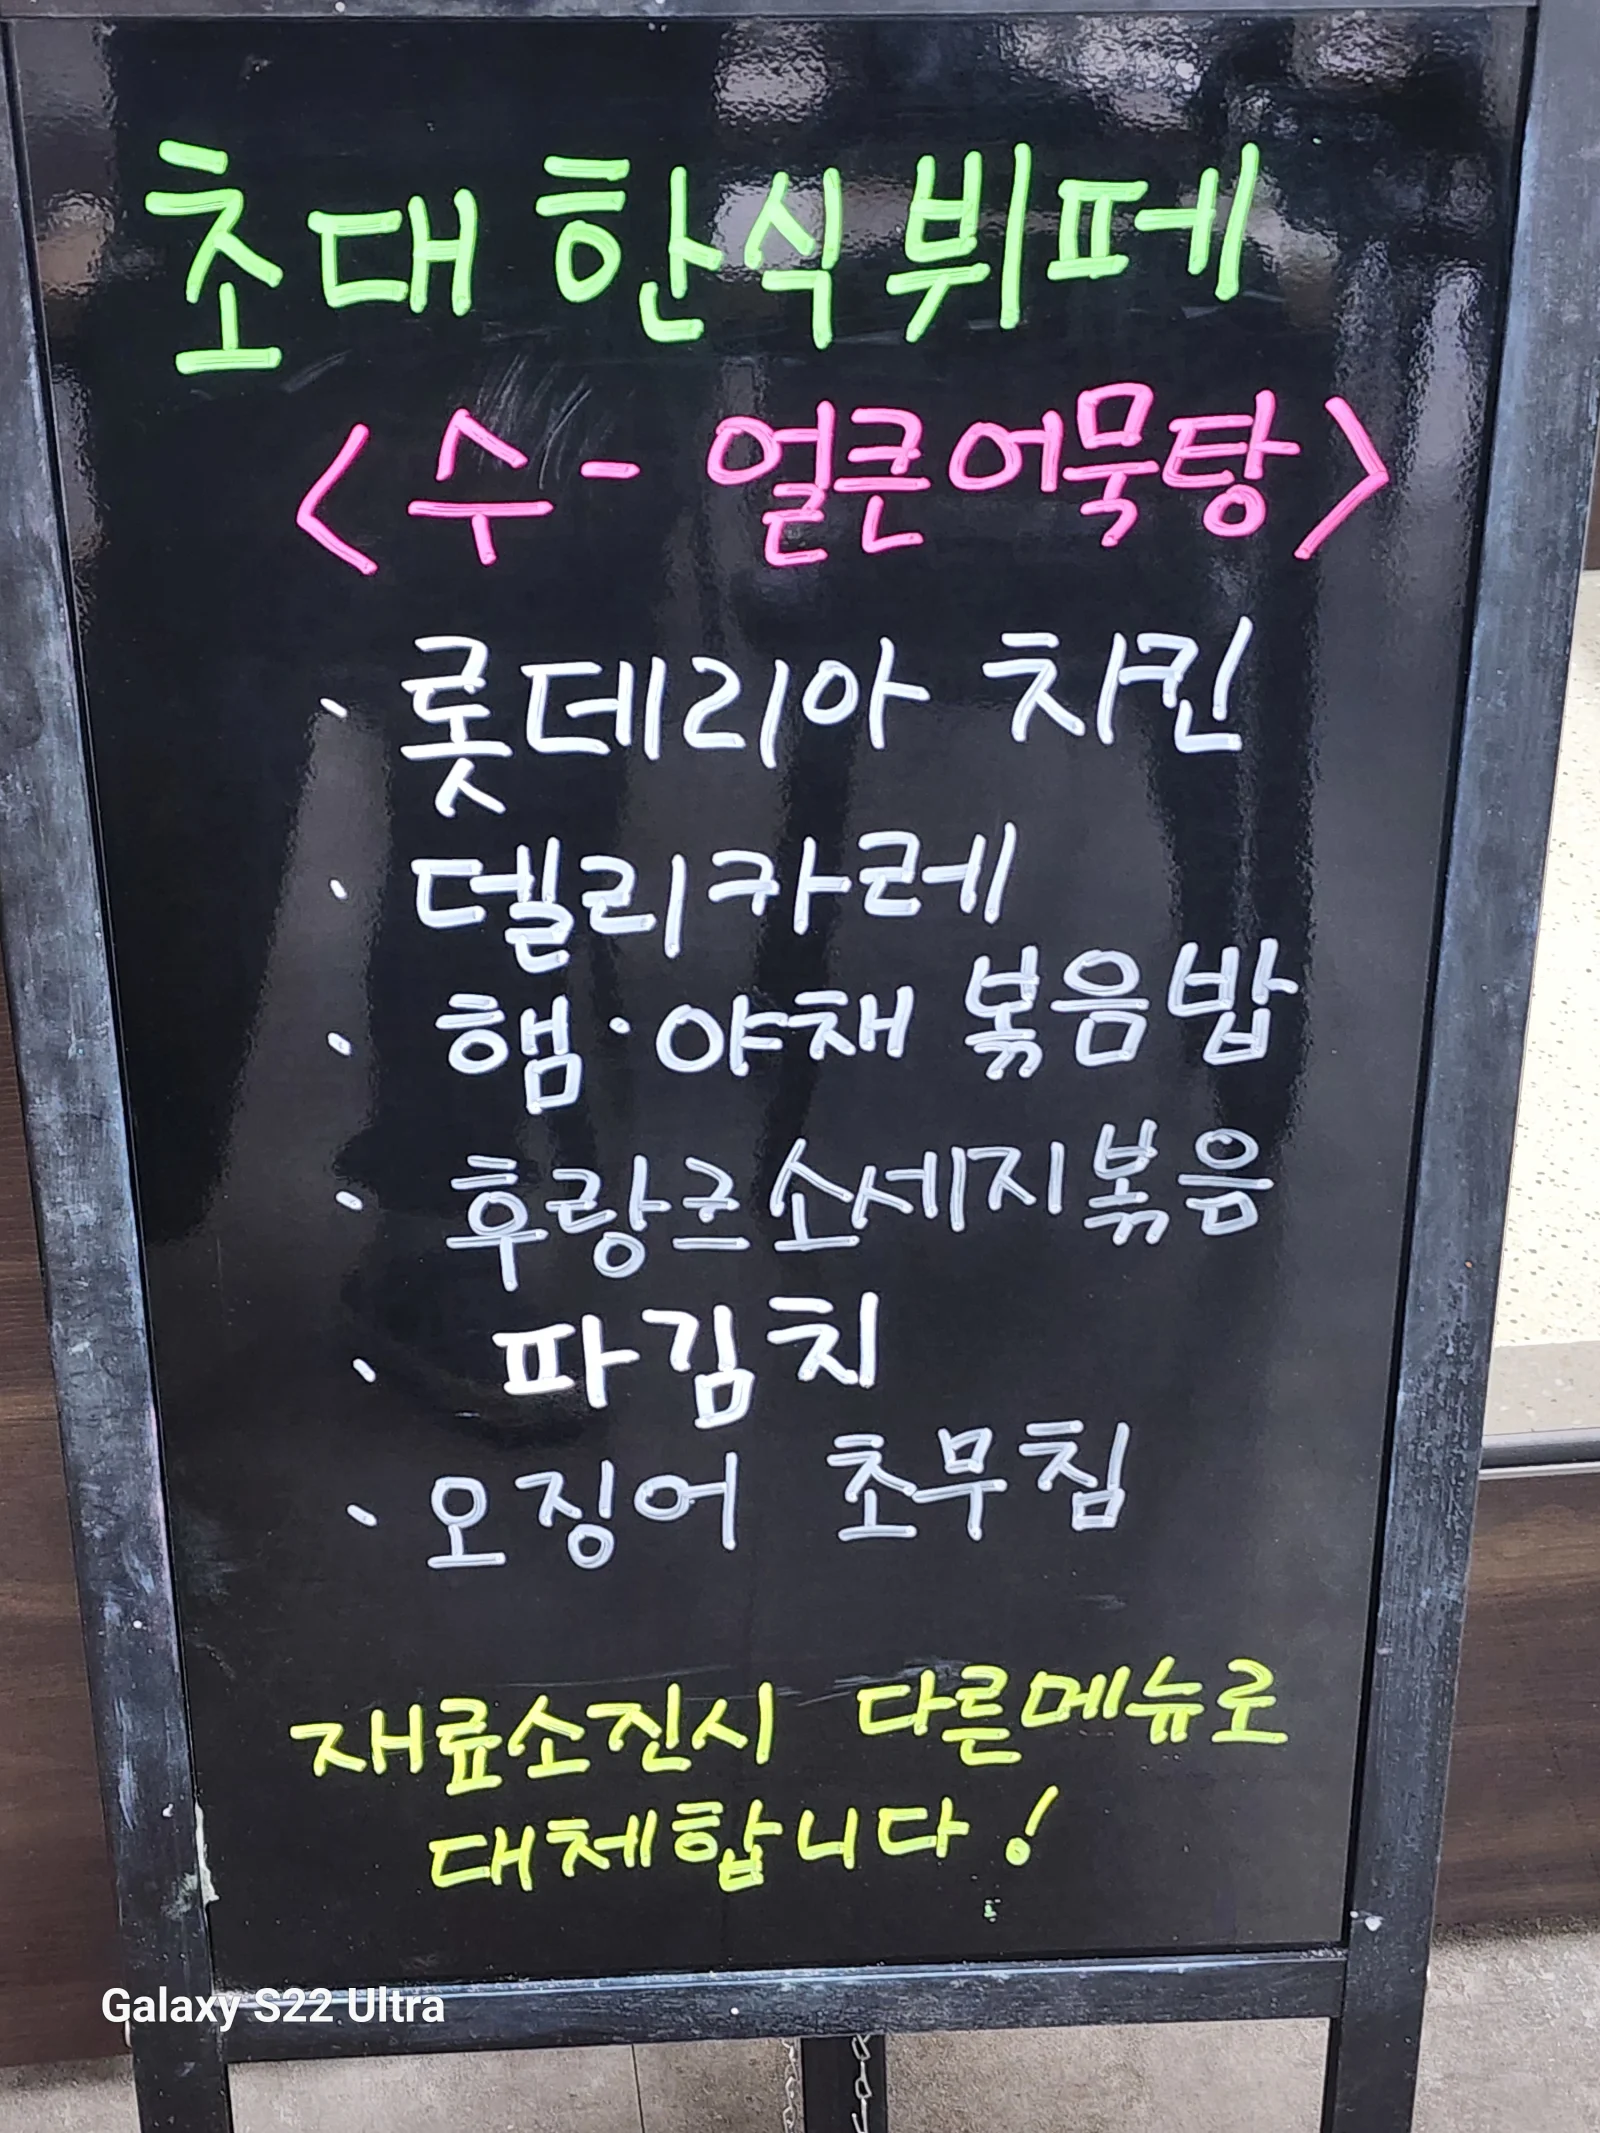 초대 한식 뷔페
< 수 - 얼큰어묵탕 >
· 롯데리아 치킨
· 델리카레
· 햄·야채 볶음밥
· 후랑크소세지볶음
· 파김치
· 오징어 초무침
재료소진시 다른메뉴로
대체합니다!
Galaxy S22 Ultra